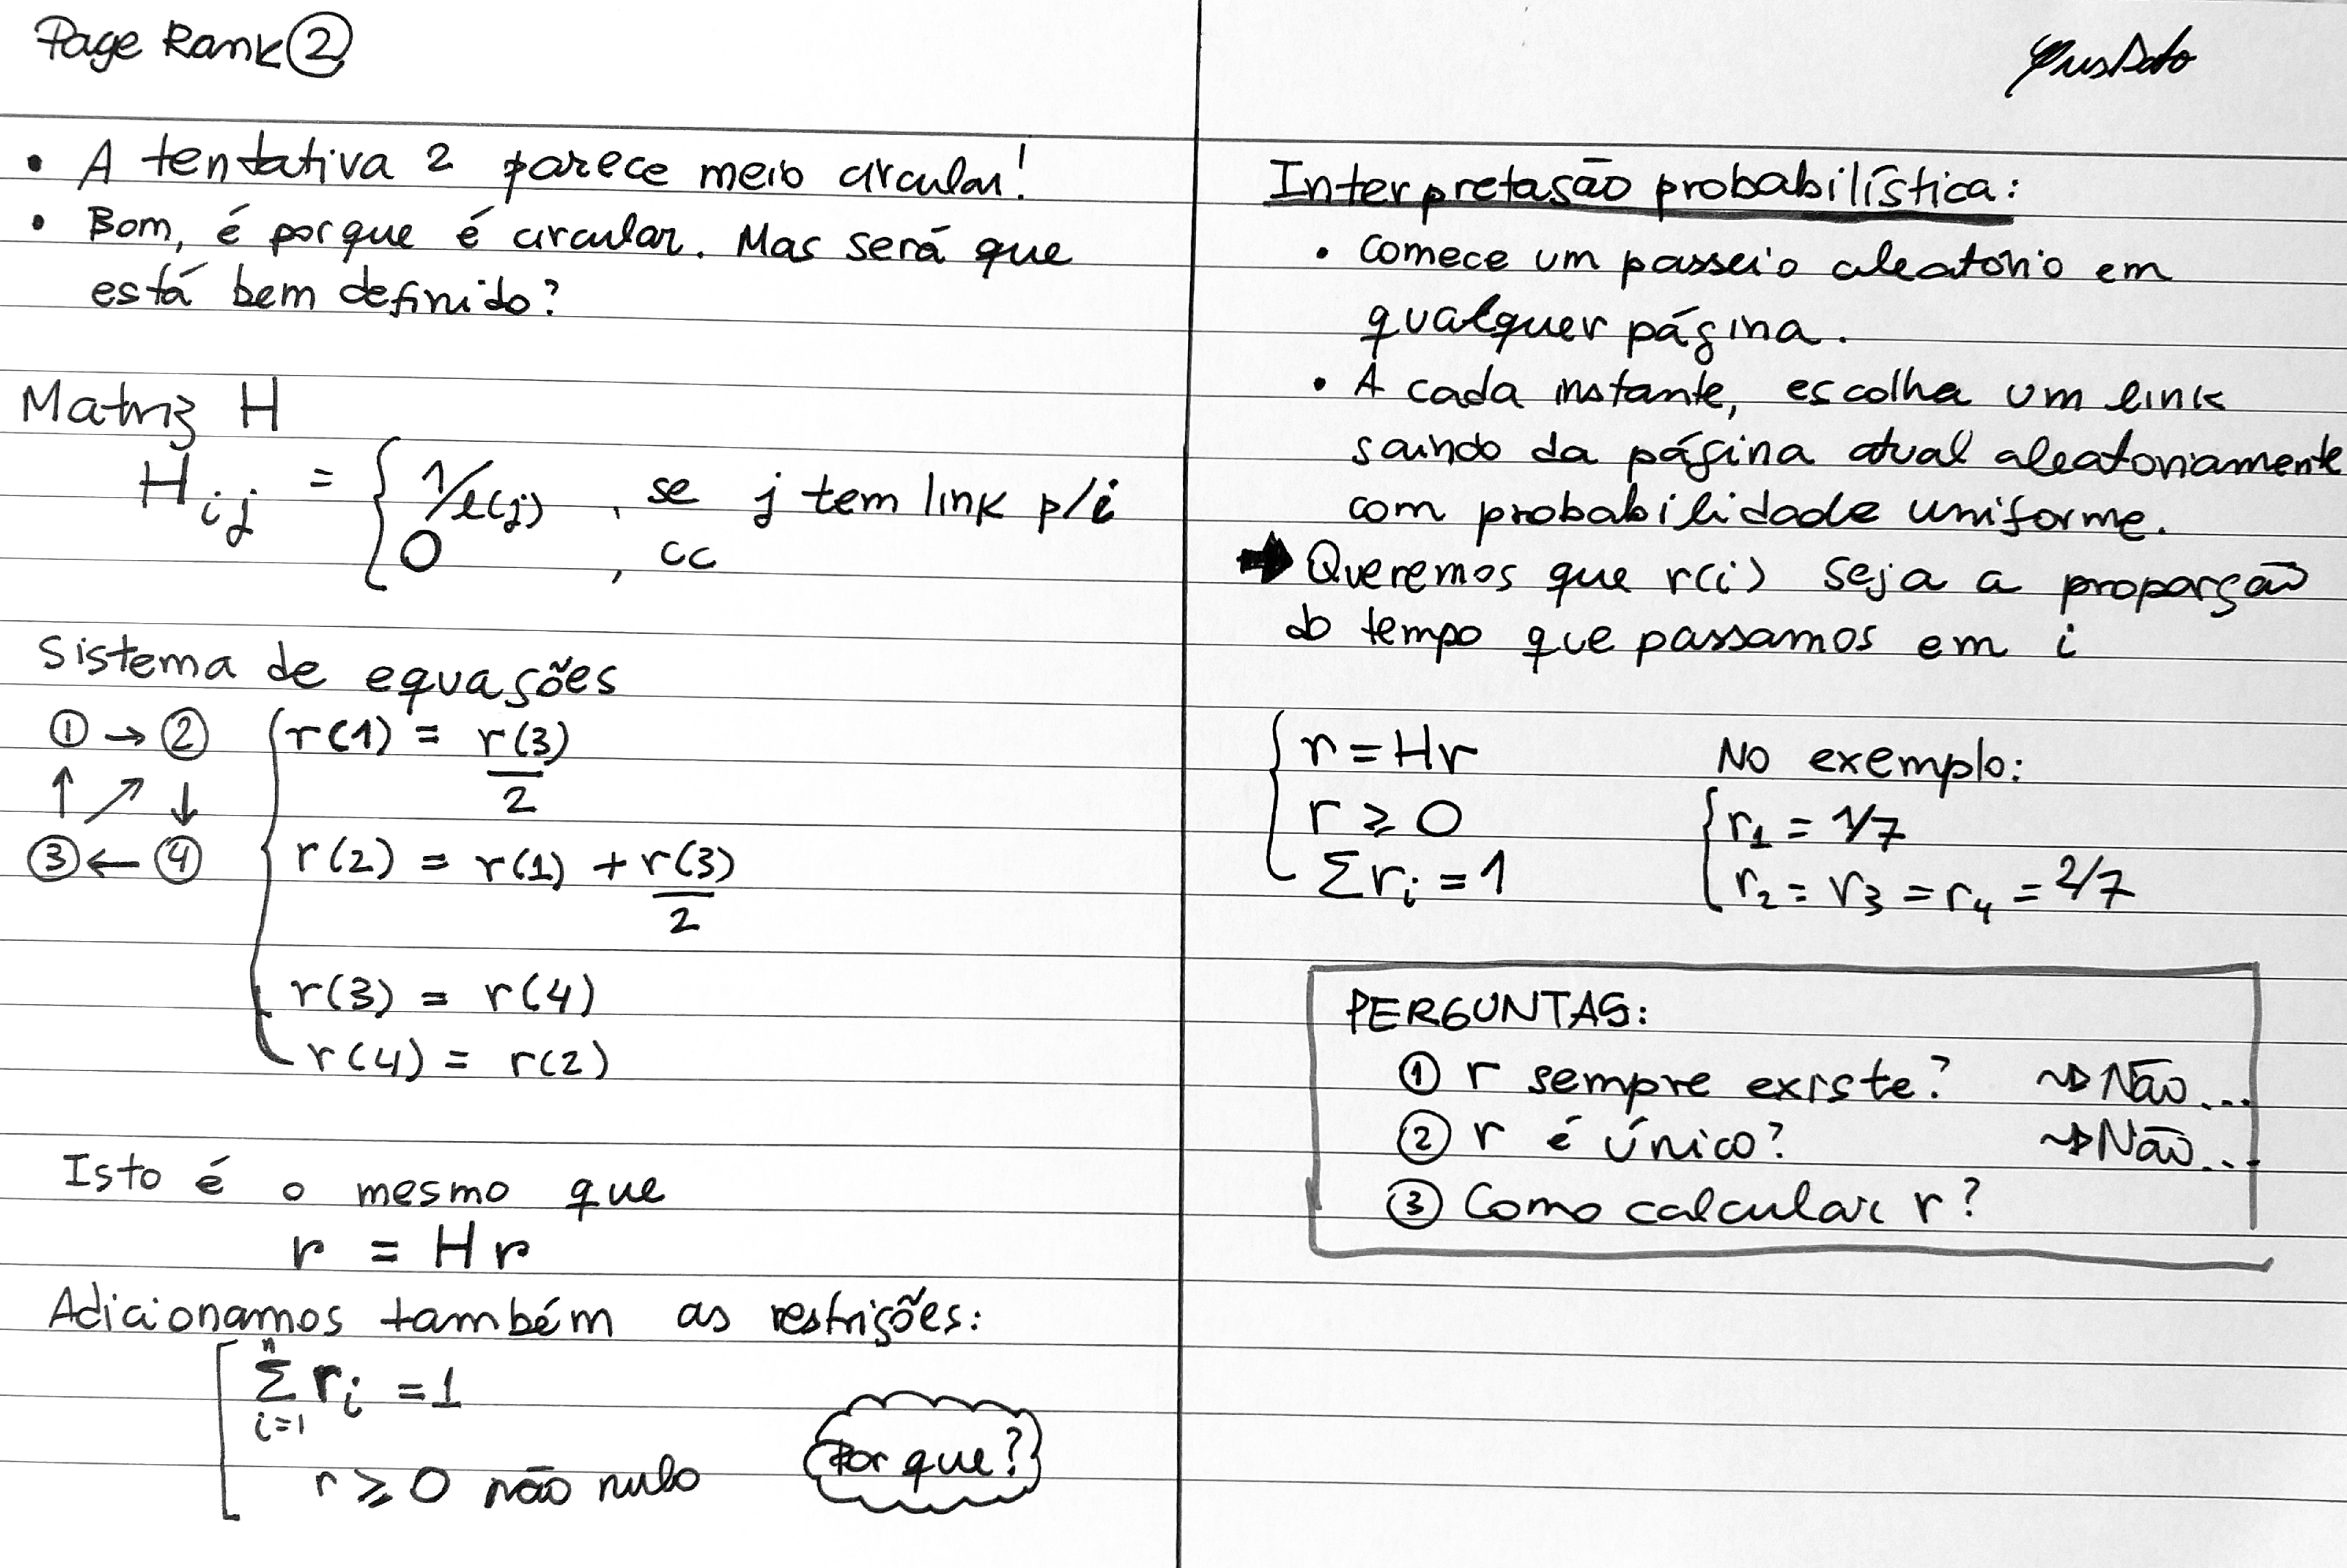 Page Rank ②
• A tentativa 2 parece meio circular!
• Bom, é porque é circular. Mas será que
está bem definido?
Matriz H
H_ij = { 1/l(j) , se j tem link p/i
0 , cc
Sistema de equações
① → ②
↑ ↗ ↓
③ ← ④
r(1) = r(3)/2
r(2) = r(1) + r(3)/2
r(3) = r(4)
r(4) = r(2)
Isto é o mesmo que
r = Hr
Adicionamos também as restrições:
Σ_{i=1}^{n} r_i = 1
r ≥ 0 não nulo
Por que?
Interpretação probabilística:
• Comece um passeio aleatório em
qualquer página.
• A cada instante, escolha um link
saindo da página atual aleatoriamente
com probabilidade uniforme.
➡ Queremos que r(i) seja a proporção
do tempo que passamos em i
r = Hr
r ≥ 0
Σ r_i = 1
No exemplo:
r_1 = 1/7
r_2 = r_3 = r_4 = 2/7
PERGUNTAS:
① r sempre existe? ⇝ Não...
② r é único? ⇝ Não...
③ Como calcular r?